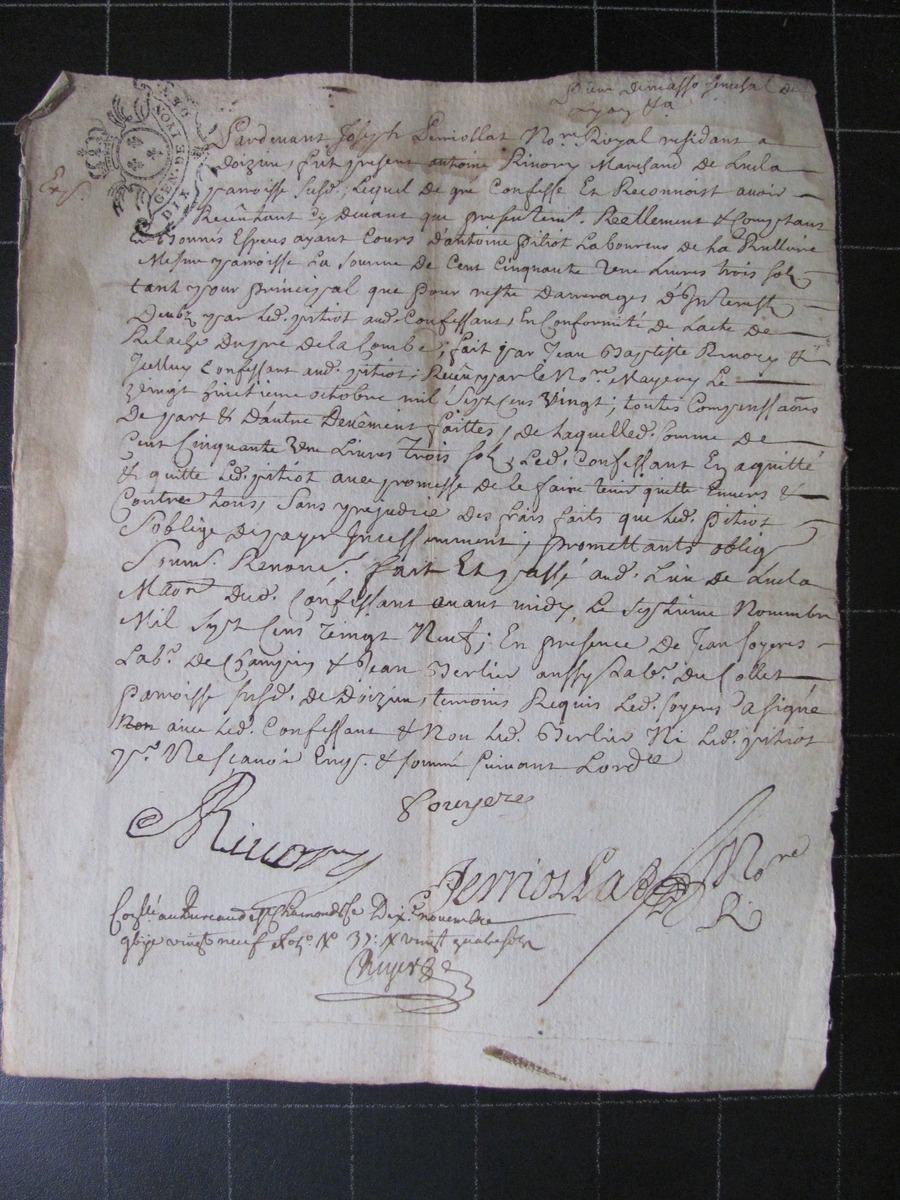 GEN. DE LYON
DIX
Pardevant Joseph Nore. Royal residant a
doizieu, fut present antoine Rivory Marchand De Lucla
parroisse susd. Lequel De gré Confesse Et Reconnoist avoir
Reçeu tant cy devant que presentemt. Reellement & Comptant
bonnes Especes ayant Cours d'antoine pitiot Laboureur de La
Mesme parroisse La somme de Cent Cinquante Vne Livres trois sols
tant pour principal que pour reste d'arrerages d'Interest
Deubz par Led. pitiot aud. Confessant, En Conformité de L'acte de
Relache du pré de la Combe, fait par Jean Baptiste Rivory &
Icelluy Confessant aud. pitiot, Reçeu par le Nore. Le
Vingt huitieme octobre mil Sept Cens Vingt; toutes Compenssaons
De part & D'autre Deuëment faittes, de Laquelled. somme de
Cent Cinquante Vne Livres Trois sols, Led. Confessant En aquitté
& quitte Led. pitiot avec promesse de le faire tenir quitte Envers &
Contre tous, Sans prejudice des frais faits que Led. pitiot
S'oblige De payer Incessemment; promettants oblig
Renonc. fait Et passé aud. Lieu de Lucla
Maon. Dud. Confessant avant midy, Le Septieme Novembre
Mil Sept Cens Vingt Neuf; En presence De Jean soyeres
Labr. De & Jean Berlier aussy Labr. Du Collet
parroisse susd. de Doizieu, temoins Requis Led. soyeres a signé
avec Led. Confessant & Non Led. Berlier Ni Led. pitiot
pr. Ne sçavoir Enqs. & sommé suivant L'ordce
Rivory
Nore
Conllé au Bureau de St Chamond Ce Dix novembre
vingt neuf fol. 37: vingt quatre sols